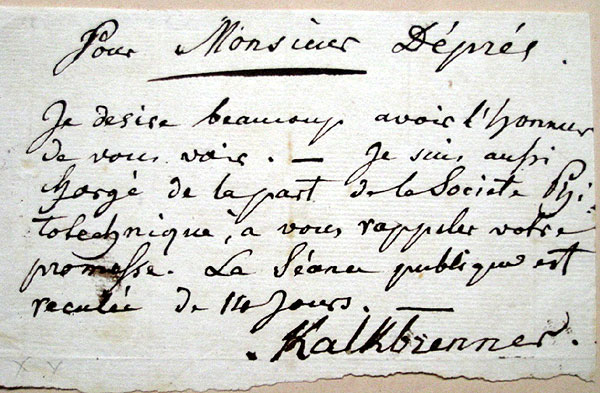 Pour Monsieur Déprés.
Je desire beaucoup avoir l'honneur
de vous voir. — Je suis aussi
chargé de la part de la Société Phi-
lotechnique, a vous rappeler votre
promesse. La Séance publique est
reculée de 14 Jours. —
Kalkbrenner.
x y